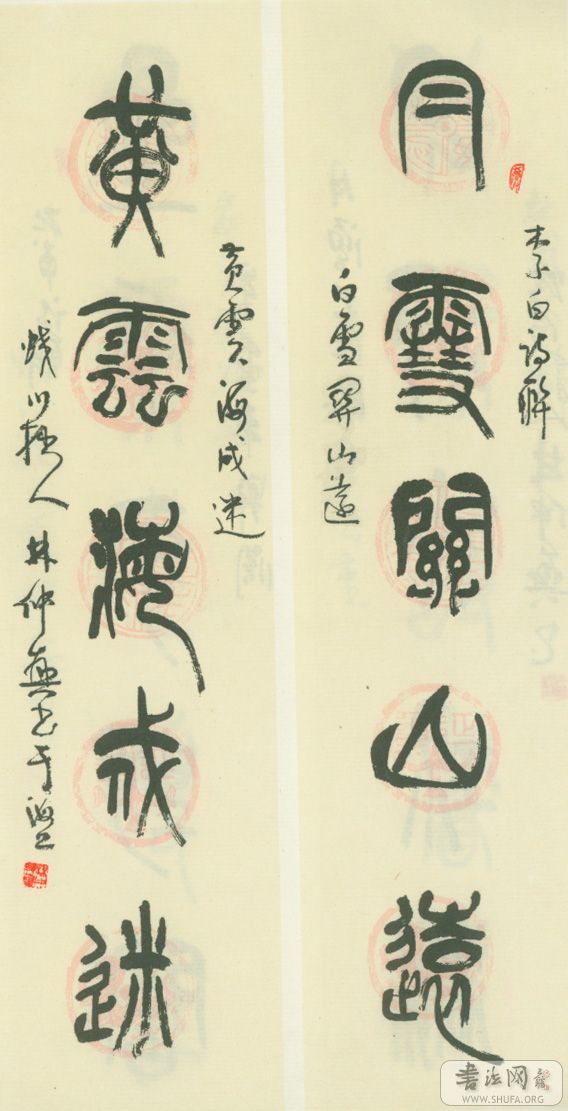 李白詩聯
白雪關山遠
白雪關山遠
黃雲海戍迷
黃雲海戍迷
人林仲興書于海上
書法网
WWW.SHUFA.ORG